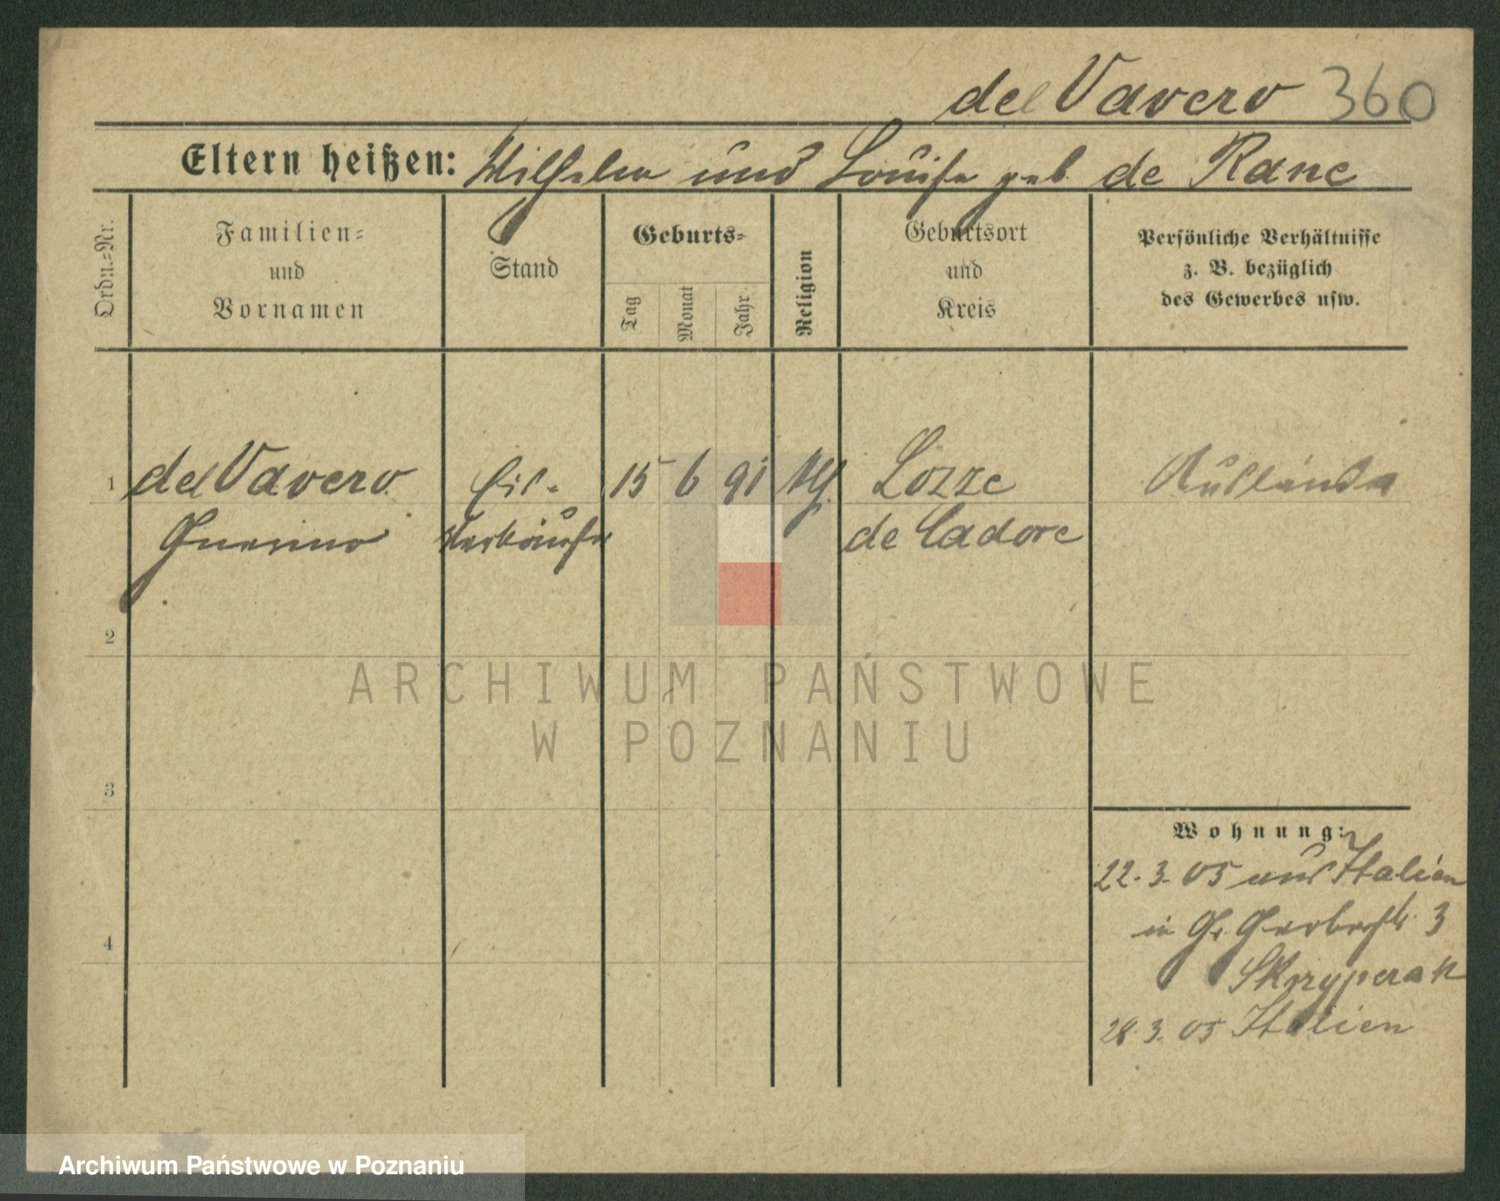 del Vavero 360
Eltern heißen: Wilhelm und Louise geb de Ranc
Ordn.-Nr.
Familien-
und
Vornamen
Stand
Geburts-
Tag
Monat
Jahr
Religion
Geburtsort
und
Kreis
Persönliche Verhältnisse
z. B. bezüglich
des Gewerbes usw.
1 del Vavero Eis- 15 6 91 Lozze Ausländer
Verkäufer de Cadore
2
3
4
Wohnung:
22.3.05 aus Italien
in Gr. Gerberstr. 3
Skrzypczak
28.3.05 Italien
ARCHIWUM PAŃSTWOWE
W POZNANIU
Archiwum Państwowe w Poznaniu